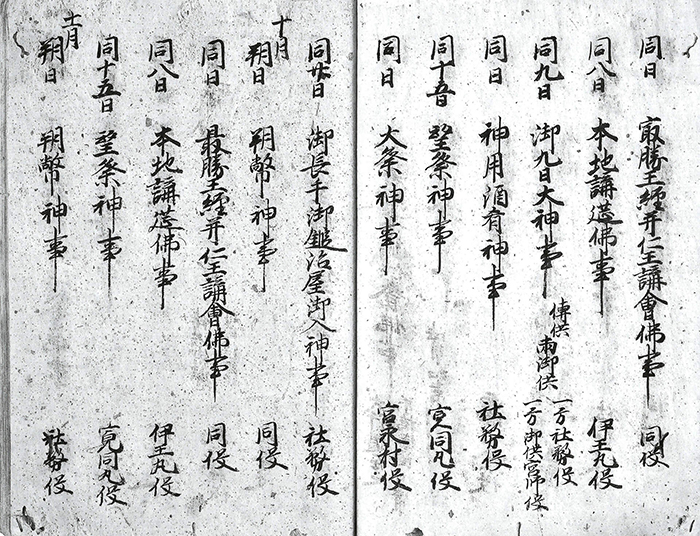 同日 最勝王經并仁王講會佛事 同役
同八日 本地講造佛事 伊王丸役
同九日 御九日大神事 傳供 両御供 一方社務役 一方御供宮師役
同日 神用酒肴神事 社務役
同十五日 望祭神事 同丸役
同日 大祭神事 宮永村役
同廿日 御長手御鎚治屋御入神事 社務役
十月
朔日 朔幣神事 同役
同日 最勝王經并仁王講會佛事 同役
同八日 本地講造佛事 伊王丸役
同十五日 望祭神事 同丸役
十一月
朔日 朔幣神事 社務役